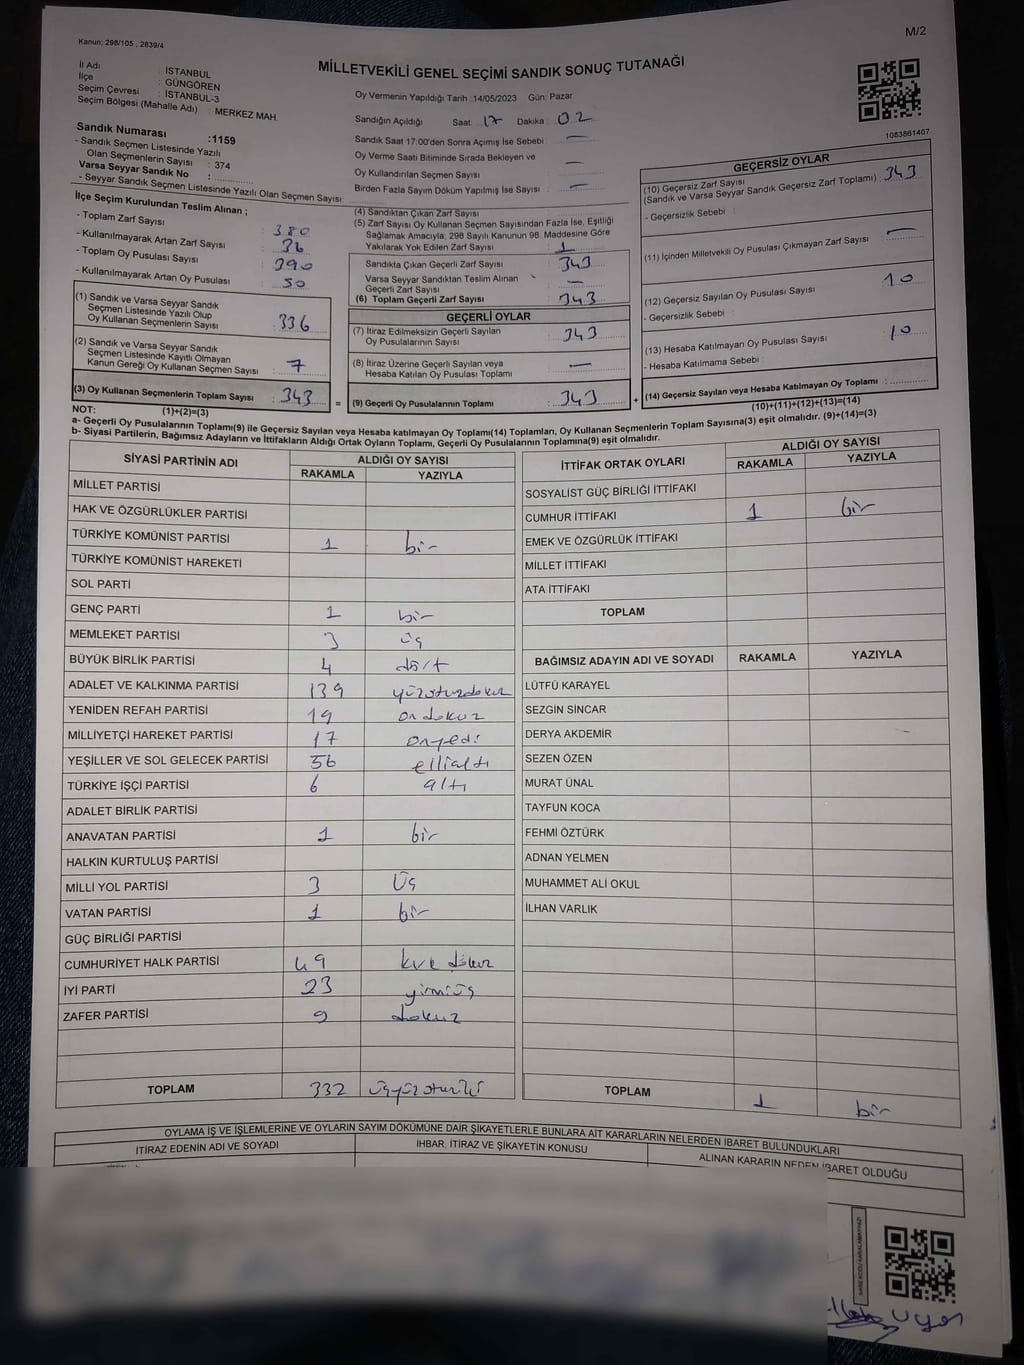 M/2
Kanun; 298/105 , 2839/4
MİLLETVEKİLİ GENEL SEÇİMİ SANDIK SONUÇ TUTANAĞI
İl Adı : İSTANBUL
İlçe : GÜNGÖREN
Seçim Çevresi : İSTANBUL-3
Seçim Bölgesi (Mahalle Adı) : MERKEZ MAH.
Sandık Numarası :1159
- Sandık Seçmen Listesinde Yazılı
Olan Seçmenlerin Sayısı : 374
Varsa Seyyar Sandık No :
- Seyyar Sandık Seçmen Listesinde Yazılı Olan Seçmen Sayısı:
Oy Vermenin Yapıldığı Tarih :14/05/2023 Gün: Pazar
Sandığın Açıldığı Saat: 17 Dakika : 02
Sandık Saat 17:00'den Sonra Açımış İse Sebebi : —
Oy Verme Saati Bitiminde Sırada Bekleyen ve
Oy Kullandırılan Seçmen Sayısı : —
Birden Fazla Sayım Döküm Yapılmış İse Sayısı : —
1083861407
İlçe Seçim Kurulundan Teslim Alınan ;
- Toplam Zarf Sayısı : 380
- Kullanılmayarak Artan Zarf Sayısı : 36
- Toplam Oy Pusulası Sayısı : 390
- Kullanılmayarak Artan Oy Pusulası : 50
(1) Sandık ve Varsa Seyyar Sandık
Seçmen Listesinde Yazılı Olup
Oy Kullanan Seçmenlerin Sayısı : 336
(2) Sandık ve Varsa Seyyar Sandık
Seçmen Listesinde Kayıtlı Olmayan
Kanun Gereği Oy Kullanan Seçmen Sayısı : 7
(3) Oy Kullanan Seçmenlerin Toplam Sayısı : 343 =
(1)+(2)=(3)
(4) Sandıktan Çıkan Zarf Sayısı :
(5) Zarf Sayısı Oy Kullanan Seçmen Sayısından Fazla İse, Eşitliği
Sağlamak Amacıyla, 298 Sayılı Kanunun 98. Maddesine Göre
Yakılarak Yok Edilen Zarf Sayısı : 1
Sandıkta Çıkan Geçerli Zarf Sayısı : 343
Varsa Seyyar Sandıktan Teslim Alınan
Geçerli Zarf Sayısı : —
(6) Toplam Geçerli Zarf Sayısı : 343
GEÇERLİ OYLAR
(7) İtiraz Edilmeksizin Geçerli Sayılan
Oy Pusulalarının Sayısı : 343
(8) İtiraz Üzerine Geçerli Sayılan veya
Hesaba Katılan Oy Pusulası Toplamı : —
(9) Geçerli Oy Pusulalarının Toplamı : 343 +
GEÇERSİZ OYLAR
(10) Geçersiz Zarf Sayısı
(Sandık ve Varsa Seyyar Sandık Geçersiz Zarf Toplamı) : 343
- Geçersizlik Sebebi :
(11) İçinden Milletvekili Oy Pusulası Çıkmayan Zarf Sayısı : —
(12) Geçersiz Sayılan Oy Pusulası Sayısı : 10
- Geçersizlik Sebebi :
(13) Hesaba Katılmayan Oy Pusulası Sayısı : 10
- Hesaba Katılmama Sebebi :
(14) Geçersiz Sayılan veya Hesaba Katılmayan Oy Toplamı :
(10)+(11)+(12)+(13)=(14)
NOT:
a- Geçerli Oy Pusulalarının Toplamı(9) ile Geçersiz Sayılan veya Hesaba katılmayan Oy Toplam(14) Toplamları, Oy Kullanan Seçmenlerin Toplam Sayısına(3) eşit olmalıdır. (9)+(14)=(3)
b- Siyasi Partilerin, Bağımsız Adayların ve İttifakların Aldığı Ortak Oyların Toplamı, Geçerli Oy Pusulalarının Toplamına(9) eşit olmalıdır.
SİYASİ PARTİNİN ADI ALDIĞI OY SAYISI
RAKAMLA YAZIYLA
MİLLET PARTİSİ
HAK VE ÖZGÜRLÜKLER PARTİSİ
TÜRKİYE KOMÜNİST PARTİSİ 1 bir
TÜRKİYE KOMÜNİST HAREKETİ
SOL PARTİ
GENÇ PARTİ 1 bir
MEMLEKET PARTİSİ 3 üç
BÜYÜK BİRLİK PARTİSİ 4 dört
ADALET VE KALKINMA PARTİSİ 139 yüzotuzdokuz
YENİDEN REFAH PARTİSİ 19 ondokuz
MİLLİYETÇİ HAREKET PARTİSİ 17 onyedi
YEŞİLLER VE SOL GELECEK PARTİSİ 56 ellialtı
TÜRKİYE İŞÇİ PARTİSİ 6 altı
ADALET BİRLİK PARTİSİ
ANAVATAN PARTİSİ 1 bir
HALKIN KURTULUŞ PARTİSİ
MİLLİ YOL PARTİSİ 3 üç
VATAN PARTİSİ 1 bir
GÜÇ BİRLİĞİ PARTİSİ
CUMHURİYET HALK PARTİSİ 49 kırk dokuz
İYİ PARTİ 23 yirmiüç
ZAFER PARTİSİ 9 dokuz
TOPLAM 332 üçyüzotuziki
İTTİFAK ORTAK OYLARI ALDIĞI OY SAYISI
RAKAMLA YAZIYLA
SOSYALİST GÜÇ BİRLİĞİ İTTİFAKI
CUMHUR İTTİFAKI 1 bir
EMEK VE ÖZGÜRLÜK İTTİFAKI
MİLLET İTTİFAKI
ATA İTTİFAKI
TOPLAM
BAĞIMSIZ ADAYIN ADI VE SOYADI RAKAMLA YAZIYLA
LÜTFÜ KARAYEL
SEZGİN SİNCAR
DERYA AKDEMİR
SEZEN ÖZEN
MURAT ÜNAL
TAYFUN KOCA
FEHMİ ÖZTÜRK
ADNAN YELMEN
MUHAMMET ALİ OKUL
İLHAN VARLIK
TOPLAM 1 bir
OYLAMA İŞ VE İŞLEMLERİNE VE OYLARIN SAYIM DÖKÜMÜNE DAİR ŞİKAYETLERLE BUNLARA AİT KARARLARIN NELERDEN İBARET BULUNDUKLARI
İTİRAZ EDENİN ADI VE SOYADI İHBAR, İTİRAZ VE ŞİKAYETİN KONUSU ALINAN KARARIN NEDEN İBARET OLDUĞU